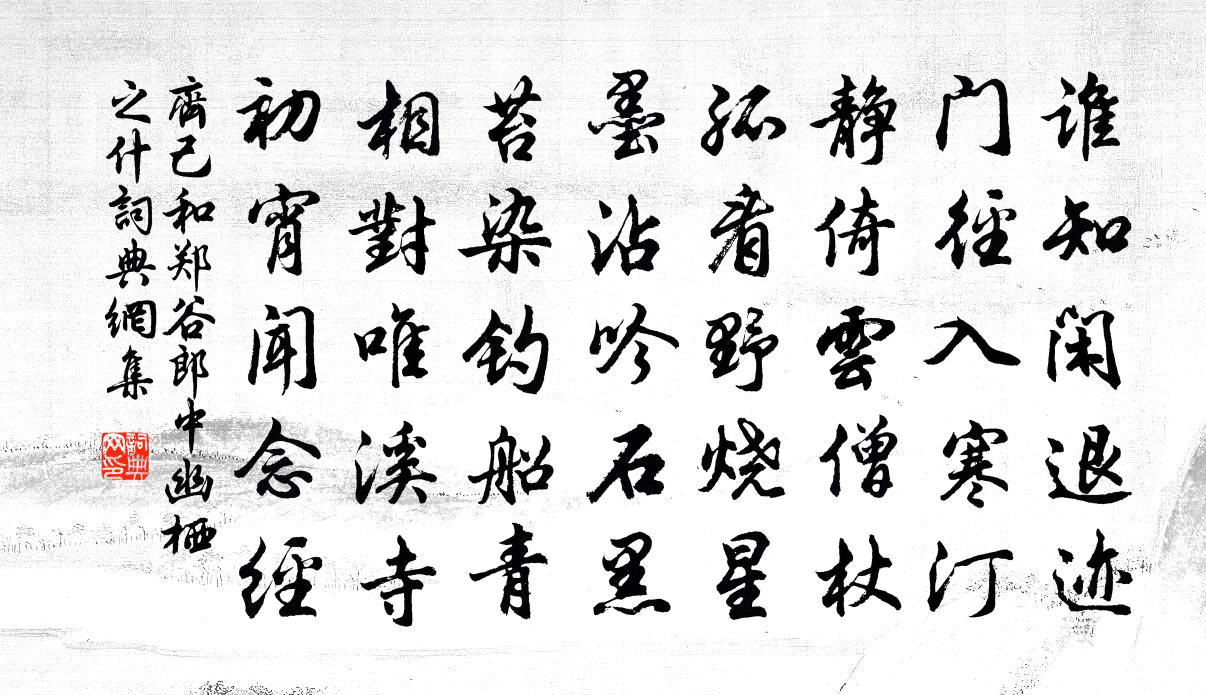 谁知闲退迹
门径入寒汀
静倚雲僧杖
孤看野烧星
墨沾吟石黑
苔染钓船青
相對唯溪寺
初宵闻念經
齊己和郑谷郎中幽栖
之什詞典網集
詞典
网印